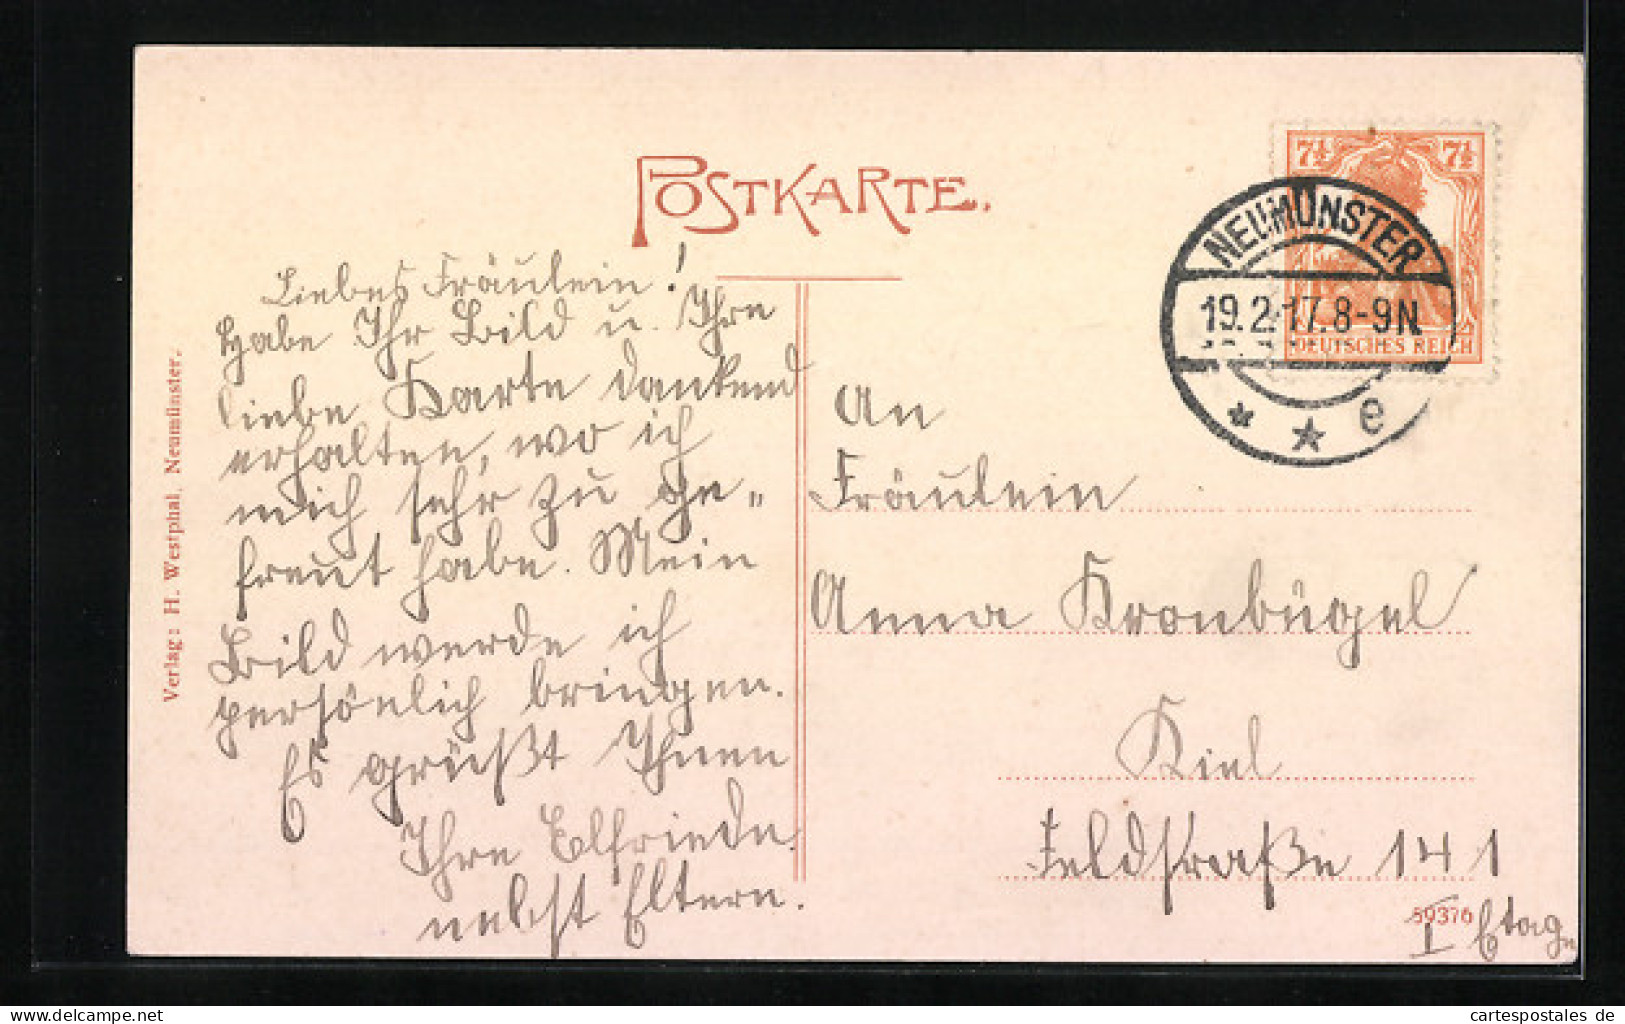 POSTKARTE.
7½ 7½
DEUTSCHES REICH
NEUMÜNSTER
19.2.17.8-9N.
* * e
Verlag: H. Westphal, Neumünster.
Liebes Fräulein!
Habe Ihr Bild u. Ihre
liebe Karte dankend
erhalten, wo ich
mich sehr zu ge„
freut habe. Mein
Bild werde ich
persönlich bringen.
Es grüßt Ihnen
Ihre Elfriede.
nebst Eltern.
An
Fräulein
Anna Kronbügel
Kiel
Feldstraße 141
59376
I Etage
www.cartespostales.eu
cartespostales de